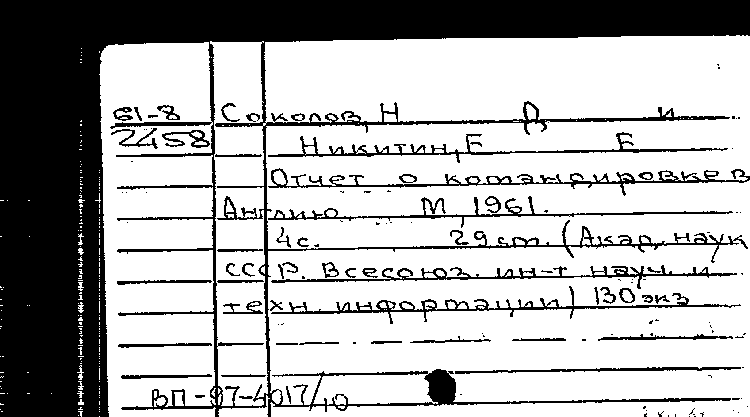 61-8 Соколов, Н Д и
2458 Никитин, Е Е
Отчет о командировке в
Англию. М, 1961.
4с. 29см. (Акад. наук
СССР. Всесоюз. ин-т науч. и
техн. информации) 130 экз
ВП-97-4017/10